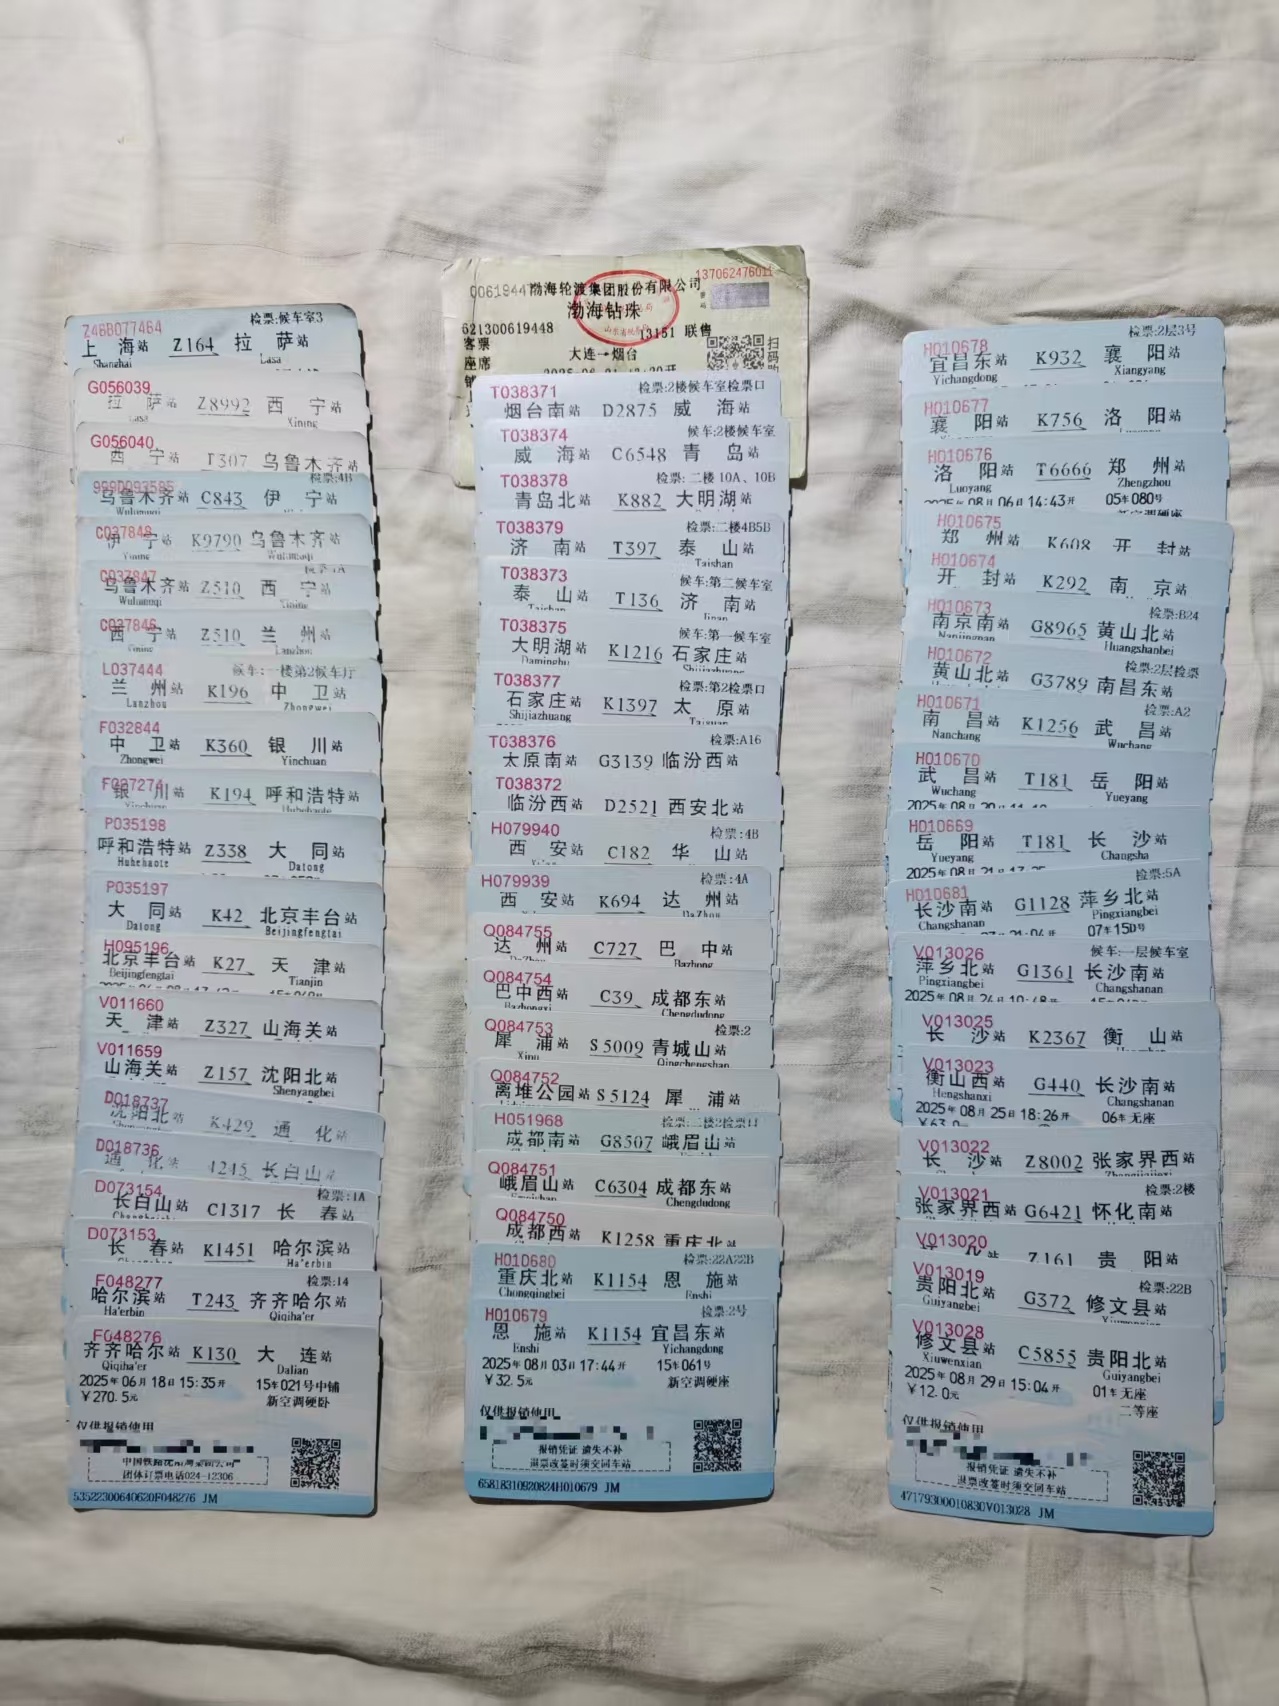 Z46B077464 检票:候车室3
上海站 Z164 拉萨站
Shanghai Lasa
G056039
拉萨站 Z8992 西宁站
Lasa Xining
G056040
西宁站 T307 乌鲁木齐站
检票:4B
乌鲁木齐站 C843 伊宁站
C037848
伊宁站 K9790 乌鲁木齐站
Yining Wulumuqi
C037847
乌鲁木齐站 Z510 西宁站
Wulumuqi Xining
C037846
西宁站 Z510 兰州站
Xining Lanzhou
L037444 候车:一楼第2候车厅
兰州站 K196 中卫站
Lanzhou Zhongwei
F032844
中卫站 K360 银川站
Zhongwei Yinchuan
F007274
银川站 K194 呼和浩特站
Yinchuan Huhehaote
P035198
呼和浩特站 Z338 大同站
Huhehaote Datong
P035197
大同站 K42 北京丰台站
Datong Beijingfengtai
H095196
北京丰台站 K27 天津站
Beijingfengtai Tianjin
V011660
天津站 Z327 山海关站
V011659
山海关站 Z157 沈阳北站
Shenyangbei
D018737
沈阳北站 K429 通化站
D018736
通化站 4245 长白山站
D073154 检票:1A
长白山站 C1317 长春站
D073153
长春站 K1451 哈尔滨站
Ha'erbin
F048277 检票:14
哈尔滨站 T243 齐齐哈尔站
Ha'erbin Qiqiha'er
F048276
齐齐哈尔站 K130 大连站
Qiqiha'er Dalian
2025年06月18日15:35开 15车021号中铺
￥270.5元 新空调硬卧
仅供报销使用
团体订票电话024-12306
53522300640620F048276 JM
00619447渤海轮渡集团股份有限公司 137062476011
渤海钻珠
621300619448 13151 联售
客票
座席 大连→烟台
T038371 检票:2楼候车室检票口
烟台南站 D2875 威海站
T038374 候车:2楼候车室
威海站 C6548 青岛站
T038378 检票:二楼10A、10B
青岛北站 K882 大明湖站
T038379 检票:二楼4B5B
济南站 T397 泰山站
Taishan
T038373 候车:第二候车室
泰山站 T136 济南站
Taishan Jinan
T038375 候车:第一候车室
大明湖站 K1216 石家庄站
Daminghu Shijiazhuang
T038377 检票:第2检票口
石家庄站 K1397 太原站
Shijiazhuang Taiyuan
T038376 检票:A16
太原南站 G3139 临汾西站
T038372
临汾西站 D2521 西安北站
H079940 检票:4B
西安站 C182 华山站
H079939 检票:4A
西安站 K694 达州站
DaZhou
Q084755
达州站 C727 巴中站
Bazhong
Q084754
巴中西站 C39 成都东站
Bazhongxi Chengdudong
Q084753 检票:2
犀浦站 S5009 青城山站
Xipu Qingchengshan
Q084752
离堆公园站 S5124 犀浦站
H051968 检票:二楼2检票口
成都南站 G8507 峨眉山站
Q084751
峨眉山站 C6304 成都东站
Emeishan Chengdudong
Q084750
成都西站 K1258 重庆北站
H010680 检票:22A22B
重庆北站 K1154 恩施站
Chongqingbei Enshi
H010679 检票:2号
恩施站 K1154 宜昌东站
Enshi Yichangdong
2025年08月03日17:44开 15车061号
￥32.5元 新空调硬座
仅供报销使用
报销凭证 遗失不补
退票改签时须交回车站
65818310920824H010679 JM
H010678 检票:2层3号
宜昌东站 K932 襄阳站
Yichangdong Xiangyang
H010677
襄阳站 K756 洛阳站
H010676
洛阳站 T6666 郑州站
Luoyang Zhengzhou
2025年08月06日14:43开 05车080号
新空调硬座
H010675
郑州站 K608 开封站
H010674
开封站 K292 南京站
H010673 检票:B24
南京南站 G8965 黄山北站
Nanjingnan Huangshanbei
H010672 检票:2层检票
黄山北站 G3789 南昌东站
H010671 检票:A2
南昌站 K1256 武昌站
Nanchang Wuchang
H010670
武昌站 T181 岳阳站
Wuchang Yueyang
H010669
岳阳站 T181 长沙站
Yueyang Changsha
H010681 检票:5A
长沙南站 G1128 萍乡北站
Changshanan Pingxiangbei
07车15D号
V013026 候车:一层候车室
萍乡北站 G1361 长沙南站
Pingxiangbei Changshanan
V013025
长沙站 K2367 衡山站
V013023
衡山西站 G440 长沙南站
Hengshanxi Changshanan
2025年08月25日18:26开 06车无座
V013022
长沙站 Z8002 张家界西站
V013021 检票:2楼
张家界西站 G6421 怀化南站
V013020
怀化站 Z161 贵阳站
V013019 检票:22B
贵阳北站 G372 修文县站
Guiyangbei Xiuwenxian
V013028
修文县站 C5855 贵阳北站
Xiuwenxian Guiyangbei
2025年08月29日15:04开 01车无座
￥12.0元 二等座
仅供报销使用
报销凭证 遗失不补
退票改签时须交回车站
47179300010830V013028 JM